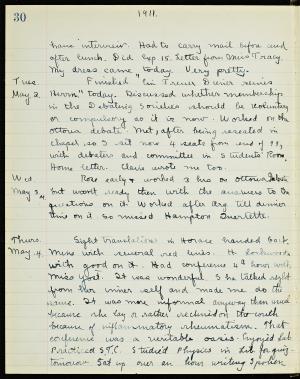 30
1911.
have interview. Had to carry mail before and
after lunch. Did Exp. 15. Letter from Miss Tracy.
My dress came today. Very pretty.
Tues. Finished "Ein Treuer Diener seines
May 2. Herrn" today. Discussed whether membership
in the Debating Societies should be voluntary
or compulsory as it is now. Worked on the
Ottawa debate. Met, after being revealed in
chapel, so I sit now 4 seats from end of 99,
with debaters and committee in Students' Room.
Home letter. Clair wrote me too.
Wed. Rose early & worked 3 hrs on Ottawa debate
May 3. but wasn't ready then with the answers to the
questions on it. Worked after Arg till dinner
this on it. So missed Hampton Quartette.
Thurs. Sight translations in Horace handed back.
May 4. Mine with several red lines. It
with good on it. Had conference ½ hour with
Miss Yost. It was wonderful. She talked right
from her inner self and made me do the
same. It was more informal anyway than usual
because she lay or rather reclined on the couch
because of inflammatory rheumatism. That
conference was a veritable oasis. Enjoyed Lab.
Practiced S.T.C. Studied Physics in Lib for quiz
tomorrow. Sat up over an hour writing Spoken